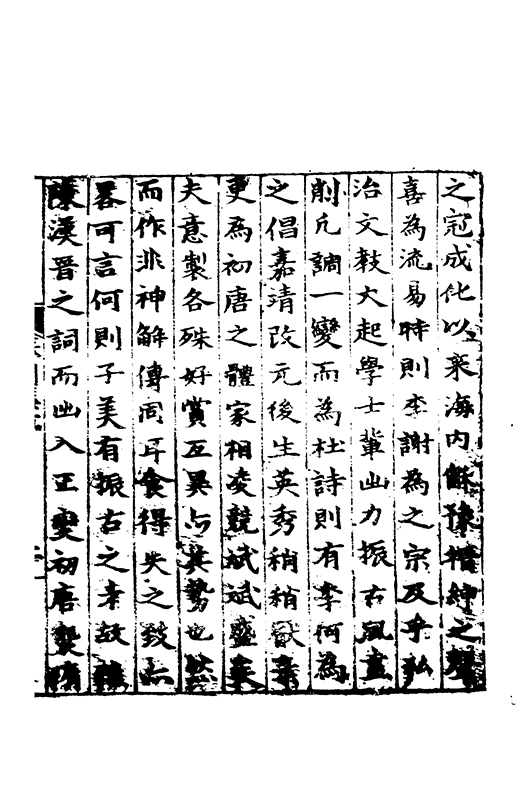 之冠成化以來海内龢豫搢紳之聲
喜為流易時則李謝為之宗及乎弘
治文敎大起學士輩出力振古風盡
削凡調一變而為杜詩則有李何為
之倡嘉靖改元後生英秀稍稍厭棄
更為初唐之體家相凌競斌斌盛矣
夫意製各殊好賞互異亦其勢也然
而作非神解傳同耳食得失之致亦
畧可言何則子美有振古之才故雜
陳漢晉之詞而出入正變初唐襲隋